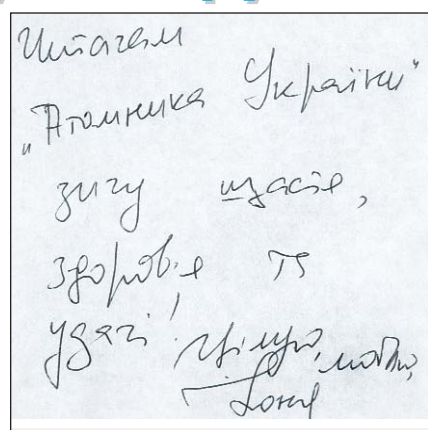 Читачам
„Атомника Украіни"
зичу щастя,
здоров'я та
удачі! Цілую, люблю,